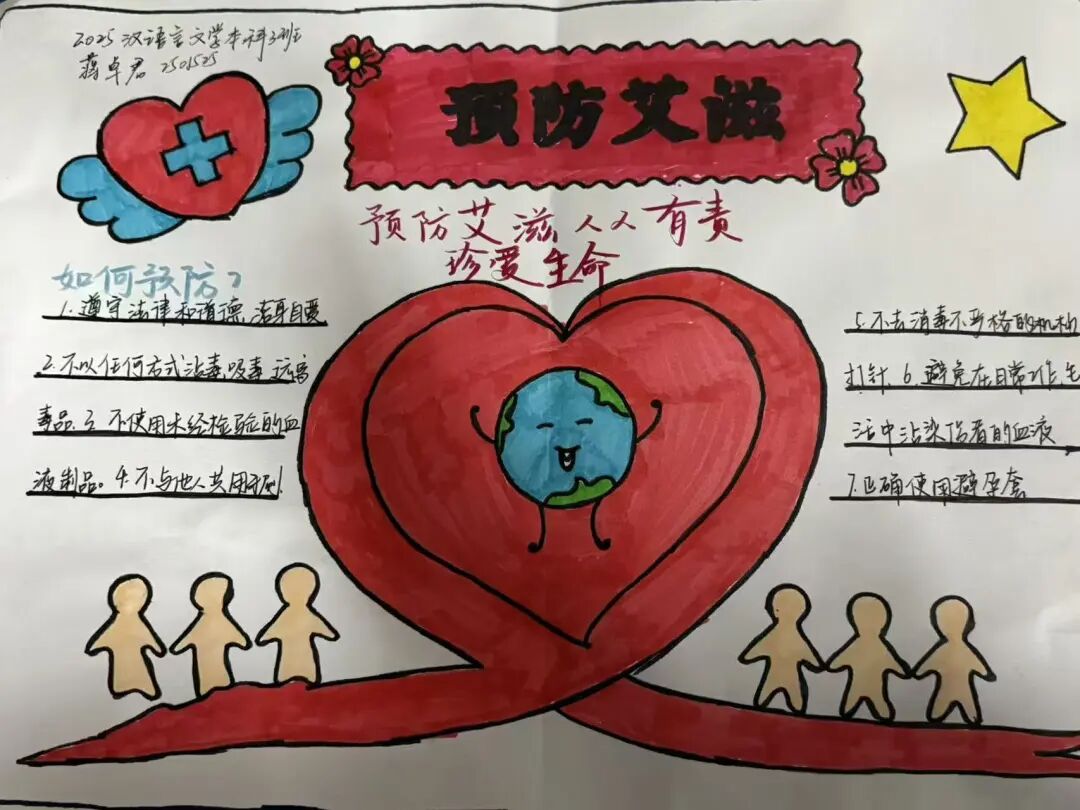 2025汉语言文学本科3班
蒋卓君 2501525
预防艾滋
预防艾滋人人有责
珍爱生命
如何预防?
1.遵守法律和道德,洁身自爱
2.不以任何方式沾毒吸毒,远离
毒品.3.不使用未经检验的血
液制品。4.不与他人共用
5.不去消毒不严格的机构
打针.6.避免在日常工作,生
活中沾染伤者的血液
7.正确使用避孕套